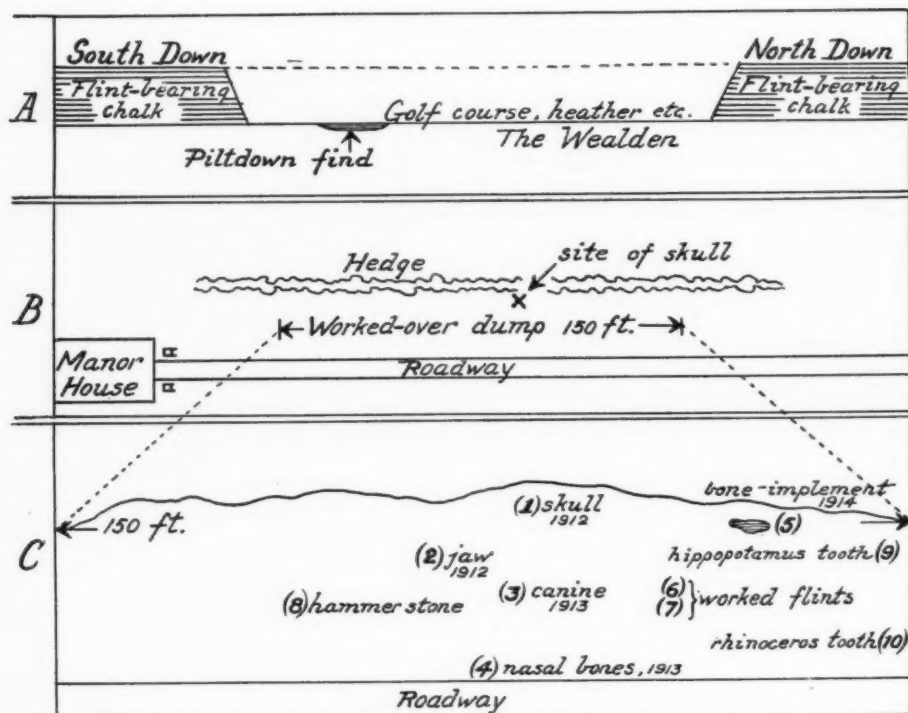 A
South Down
North Down
Flint-bearing
chalk
Flint-bearing
chalk
Golf course, heather etc.
The Wealden
Piltdown find
B
Hedge
site of skull
X
Worked-over dump 150 ft.
Manor
House
Roadway
C
150 ft.
(1) skull
1912
bone-implement
1914
(5)
(2) jaw
1912
hippopotamus tooth (9)
(8) hammer stone
(3) canine
1913
(6)
(7)
worked flints
rhinoceros tooth (10)
(4) nasal bones, 1913
Roadway